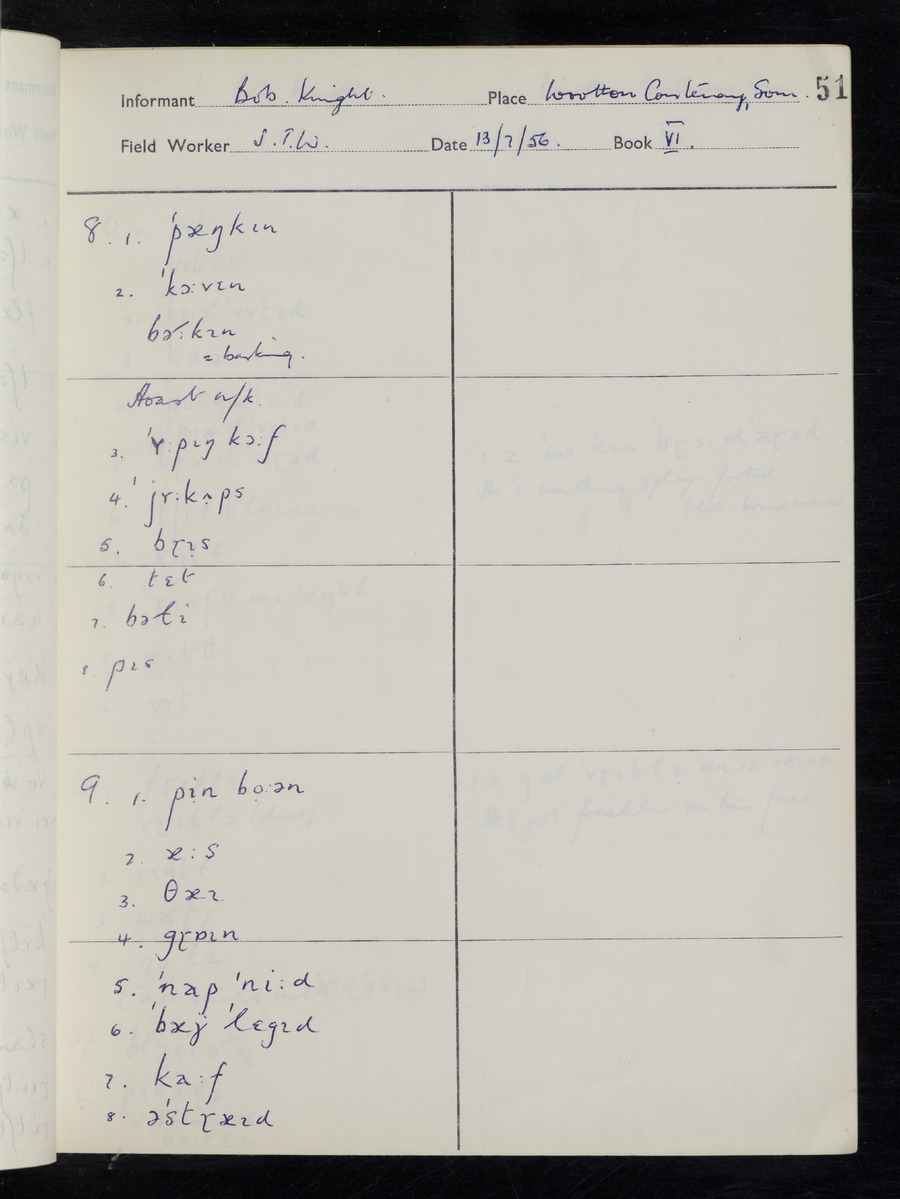 Informant Bob. Knight. Place Wootton Courtenay, Som. 51
Field Worker S.T.W. Date 13/7/56. Book VI.
8. 1. ˈpæŋkɪn
2. ˈkɔːvɪn
bɚːkɪn
= barking.
n/k.
3. ˈʏːpɪŋ kɔːf
4. ˈjʏːkʌps
5. bɽɪs
6. tɛt
7. bɔti
8. pɪs
9. 1. pin boːən
2. æːs
3. θæɪ
4. gɽɒɪn
5. ˈnap ˈniːd
6. ˈbæj ˈlɛgɪd
7. kaːf
8. əˈstɽæɪd